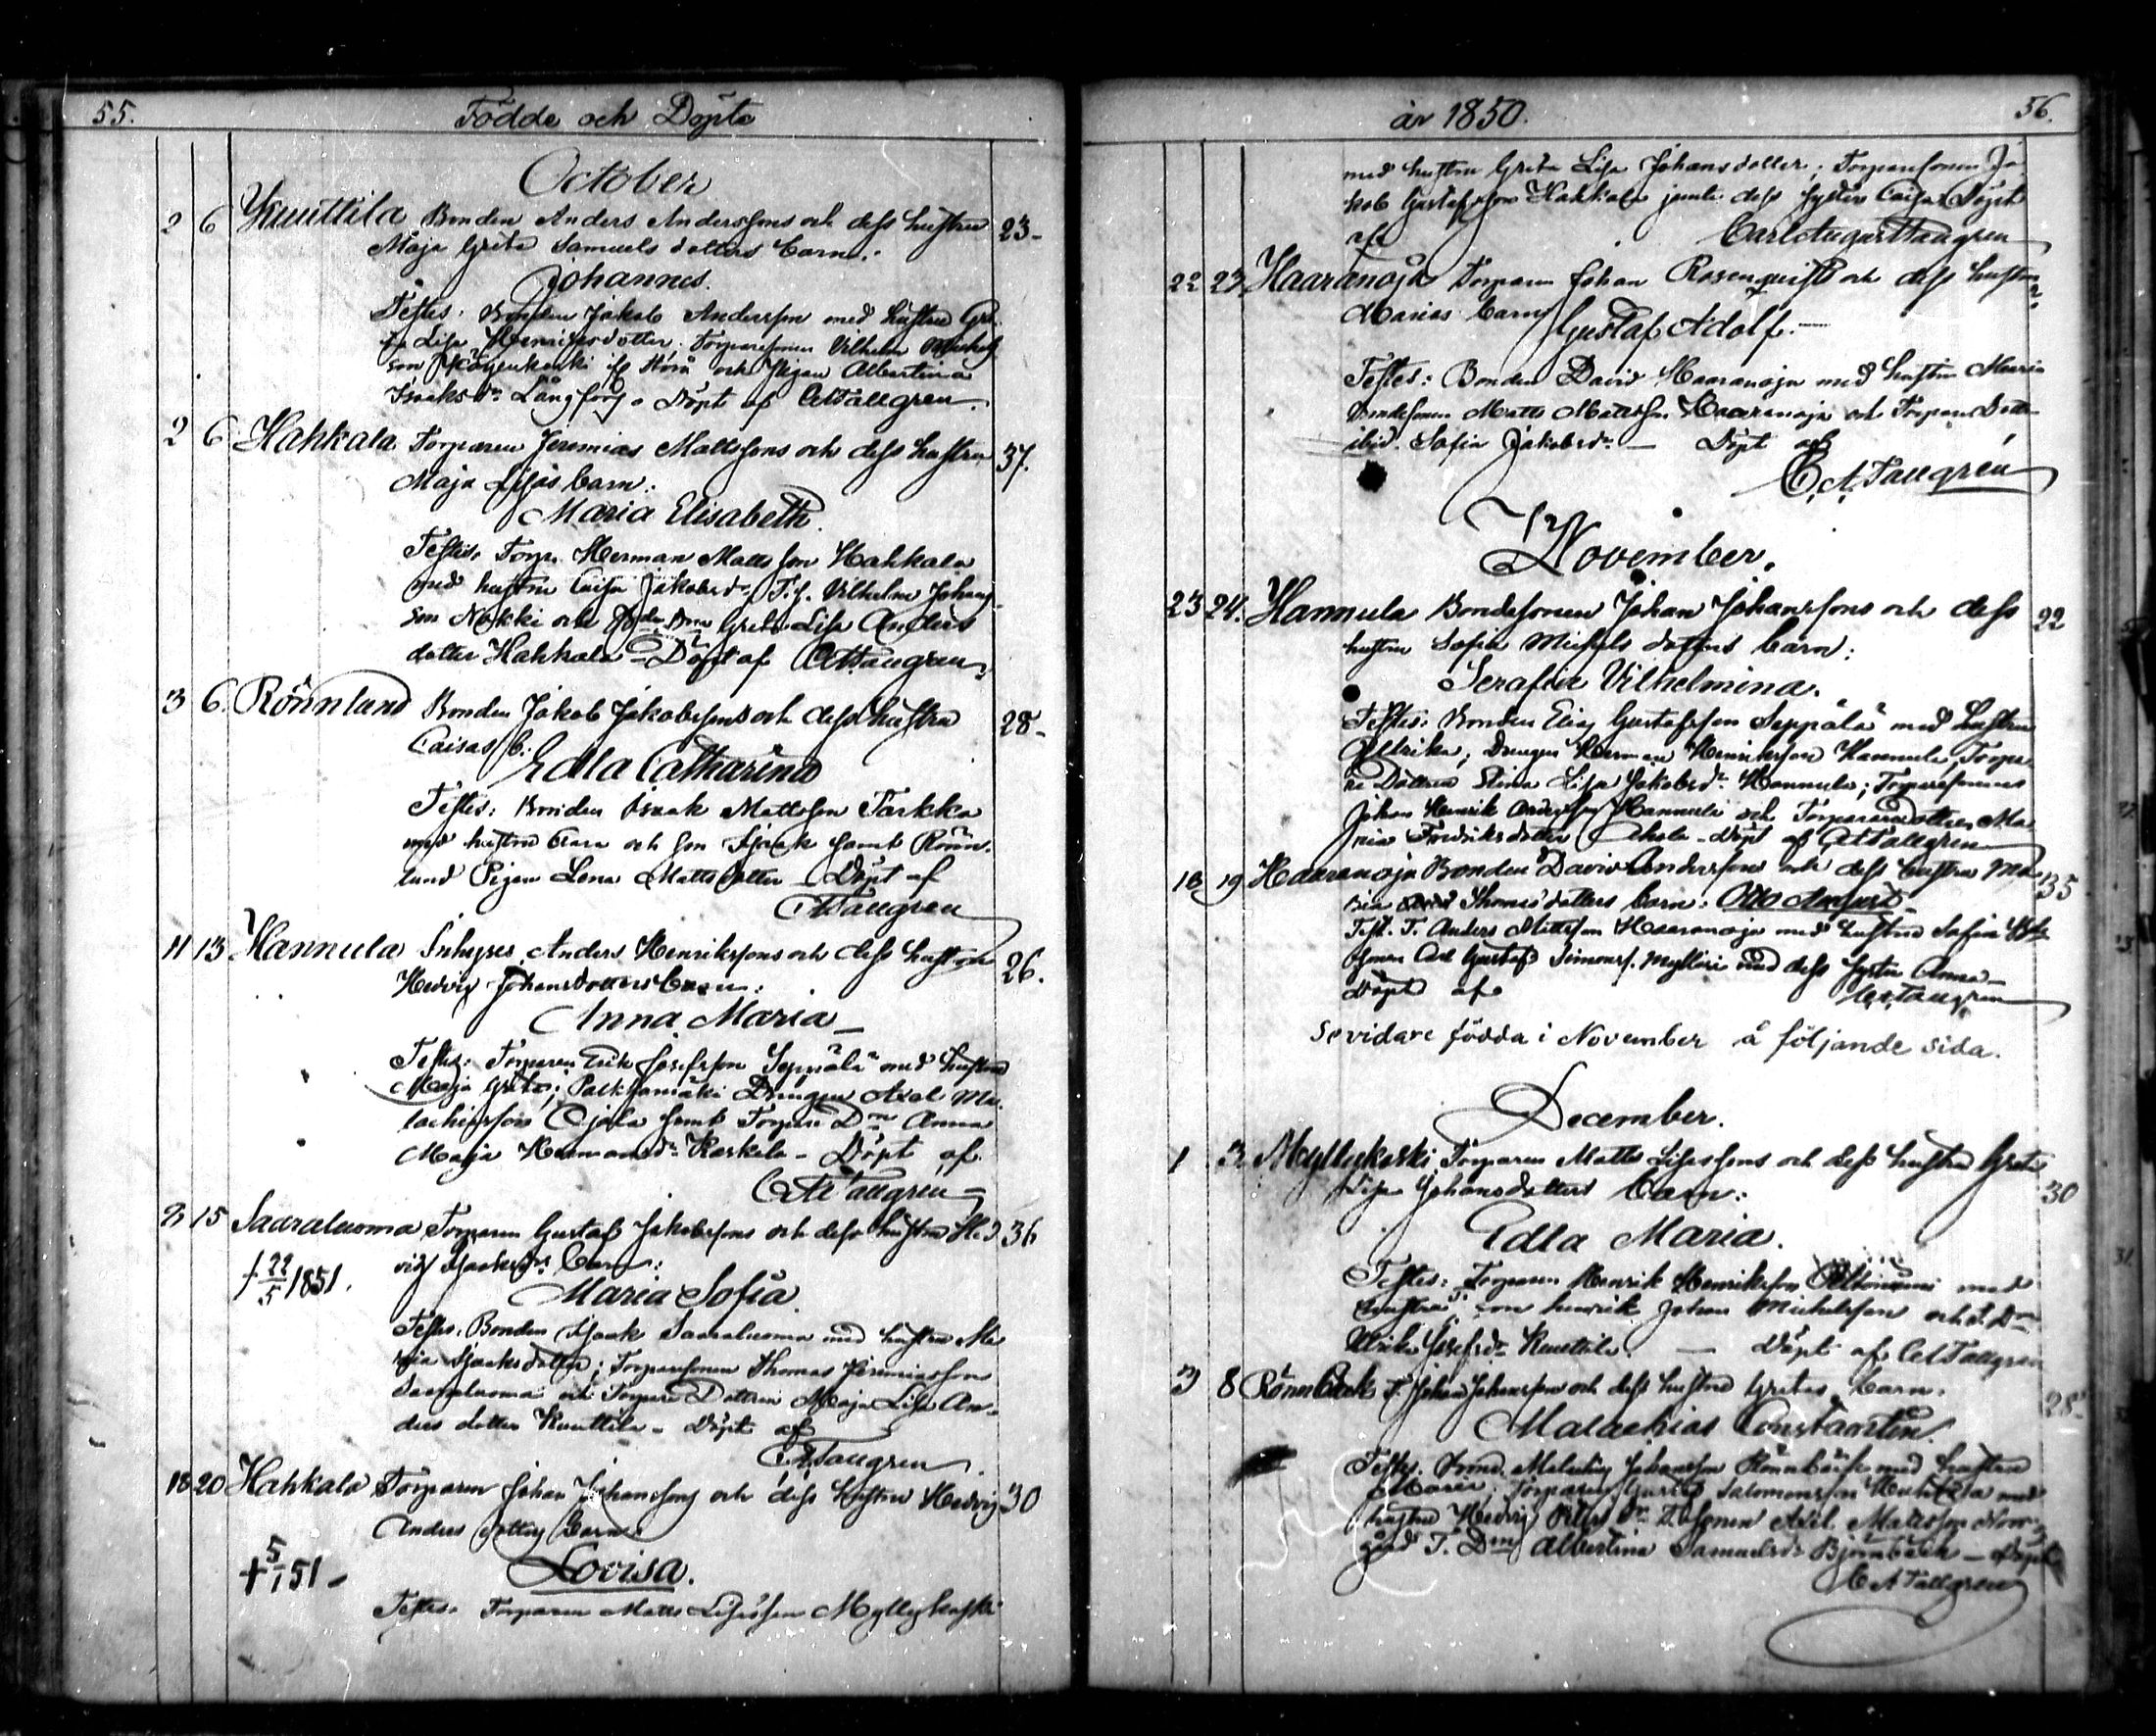 55.
Födde och Döpte
October
2 6 Knuttila Bonden Anders Anderssons och dess hustru 23-
Maja Greta Samuels dotters barn:
Johannes.
Testes: Bonden Jakob Andersson med hustru Gre-
ta Lisa Henriksdotter. Torparesonen Vilhelm
son och Pigan Albertina
Isaksdr Långfors. Döpt af CATallgren.
2 6 Hahkala Torparen Jeremias Mattssons och dess hustru 37.
Maja Lisas barn:
Maria Elisabeth.
Testes: Torp. Herman Mattsson Hahkala
med hustru Caisa Jakobsdr, T.s. Vilhelm Johans-
son Nokki och Greta Lisa Anders
dotter Hahkala - Döpt af CATallgren.
3 6. Rönnlund Bonden Jakob Jakobssons och dess hustru 28-
Caisas b:
Edla Catharina
Testes: Bonden Isaak Mattsson Tarkka
med hustru och son Isaak samt Rönn-
lund Pigan Lena Mattsdotter - Döpt af
CATallgren
11 13 Hannula Inhyses Anders Henrikssons och dess hustru 26.
Hedvig Johansdotters barn:
Anna Maria -
Testes: Torparen Erik Josefsson Seppälä med hustru
Maja Greta; Palkkamäki Drängen Axel Ma-
lachiasson Ojala samt Torpare Drn Anna
Maja Hermansdr Koskela - Döpt af
CATallgren -
3 15 Saarеluoma Torparen Gustaf Jakobssons och dess hustru Hed- 36
vig Isaaksdrs Barn:
† 22/5 1851.
Maria Sofia.
Testes: Bonden Isaak Saaraluoma med hustru Ma-
ria Isaksdotter; Torparesonen Thomas Jeremiasson
Saaraluoma och Torpare Dottren Maja Lisa An-
ders dotter Knuttila - Döpt af
CATallgren.
18 20 Hahkala Torparen Johan Johanssons och dess hustru Hedvig 30
Anders dotters Barn:
† 5/1 51 -
Lovisa.
Testes: Torparen Matts Lisasson Myllykoski
år 1850.
56.
med hustru Greta Lisa Johansdotter; Torparesonen Ja-
kob Gustafsson Hahkala jemte dess syster Caisa. Döpt
af Carl August Tallgren
22 23 Haaranoja Torparen Johan Rosenqvists och dess hustru
Marias barn
Gustaf Adolf. -
Testes: Bonden David Haaranoja med hustru Maria
Bondesonen Matts Mattsson Haaranoja och Torpare Dotter
ibid. Sofia Jakobsdr - Döpt af
C.A. Tallgren
November.
23 24. Hannula Bondesonen Johan Johanssons och dess 22
hustru Sofia Michels dotters barn:
Serafia Vilhelmina.
Testes: Bonden Elias Gustafsson Seppälä med hustru
Ulrika; Drengen Herman Henriksson Hannula, Torpa-
re Dottren Stina Lisa Jakobsdr Hannula; Torparesonen
Johan Henrik Andersson Hannula och Torparedottren Ma-
ria Fredriksdotter - Döpt af CATallgren
18 19 Haaranoja Bonden David Anderssons och dess hustru Ma- 35
ria Thomas dotters barn: Otto August -
Test. T. Anders Mattsson Haaranoja med hustru Sofia
sonen Carl Gustaf Simonss. Mylläri med dess syster Anna -
Döpt af CATallgren
Se vidare födda i November å följande sida.
December.
1 3. Myllykoski Torparen Matts Lisassons och dess hustru Greta
Lisa Johansdotters Barn: 30
Edla Maria.
Testes: Torparen Henrik Henriksson med
hustru, son henrik Johan Michelsson och T. Drn
Ulrika Josefsdr Knuttila. - Döpt af CATallgren
3 8 Rönnback T. Johan Johanssons och dess hustru Gretas barn. 28-
Malachias Constantin.
Testes. Bond. Malachias Johansson Rönnbäck med hustru
Maria; Torparen Gustaf Salomonsson Huhtala med
hustru Hedvig T. Sonen Axel Mattsson Norr-
gård T. Drn Albertina Samuelsdr Björnbäck - Döpt
CATallgren